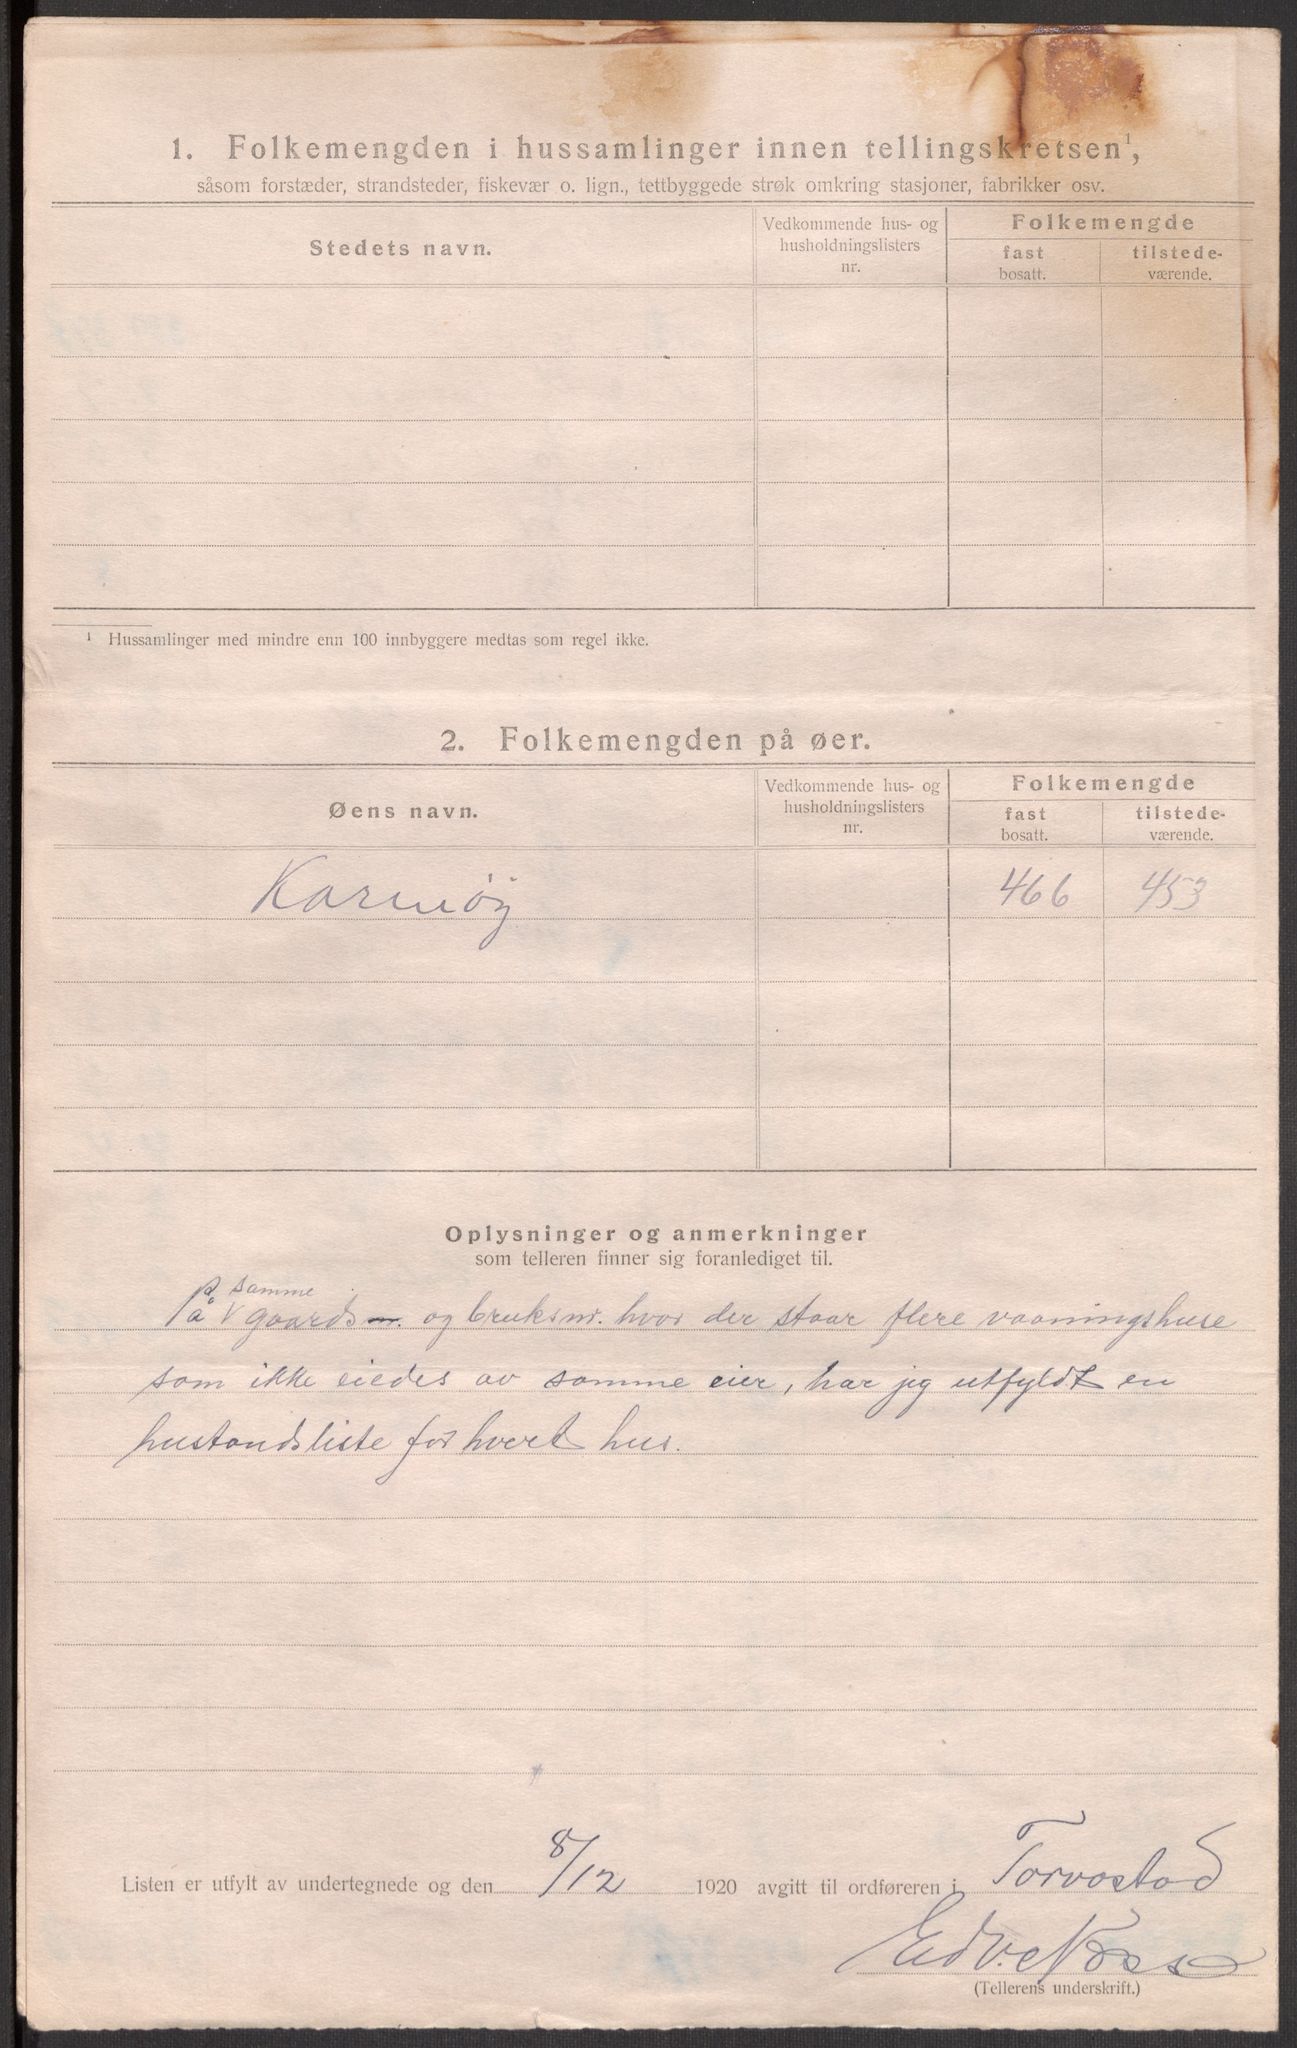 1. Folkemengden i hussamlinger innen tellingskretsen¹,
såsom forstæder, strandsteder, fiskevær o. lign., tettbyggede strøk omkring stasjoner, fabrikker osv.
Stedets navn.
Vedkommende hus- og
husholdningslisters
nr.
Folkemengde
fast
bosatt.
tilstede-
værende.
¹ Hussamlinger med mindre enn 100 innbyggere medtas som regel ikke.
2. Folkemengden på øer.
Øens navn.
Vedkommende hus- og
husholdningslisters
nr.
Folkemengde
fast
bosatt.
tilstede-
værende.
Karmöy 466 453
Oplysninger og anmerkninger
som telleren finner sig foranlediget til.
På samme gaards og bruksnr. hvor der staar flere vaaningshuse
som ikke eiedes av samme eier, har jeg utfyldt en
hustandsliste for hvert hus.
Listen er utfylt av undertegnede og den 8/12 1920 avgitt til ordføreren i Torvastad
Edv. Næss
(Tellerens underskrift.)